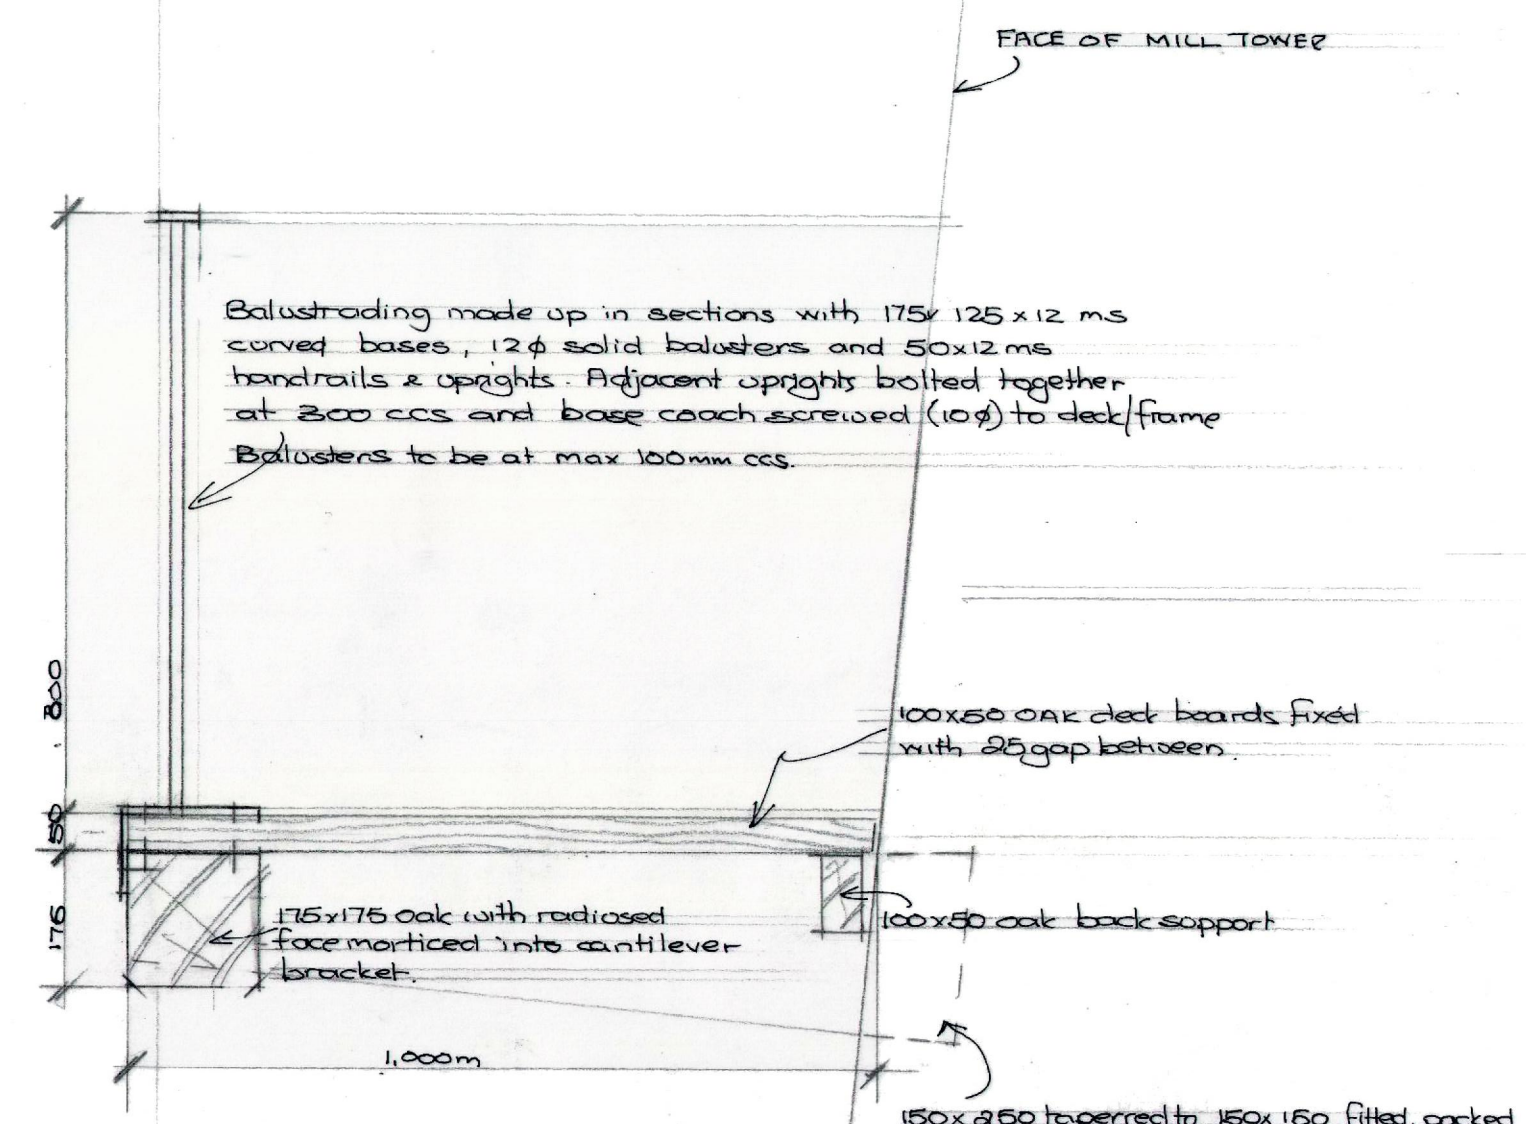 FACE OF MILL TOWER
Balustrading made up in sections with 175x 125 x 12 ms
curved bases, 12ϕ solid balusters and 50x12 ms
handrails & uprights. Adjacent uprights bolted together
at 300 ccs and base coach screwed (10ϕ) to deck/frame
Balusters to be at max 100mm ccs.
800
100x50 OAK deck boards fixed
with 25 gap between.
50
175x175 Oak with radiused
face morticed into cantilever
bracket.
100x50 oak back support
176
1,000m
150 x 250 taperred to 150x150 fitted, packed